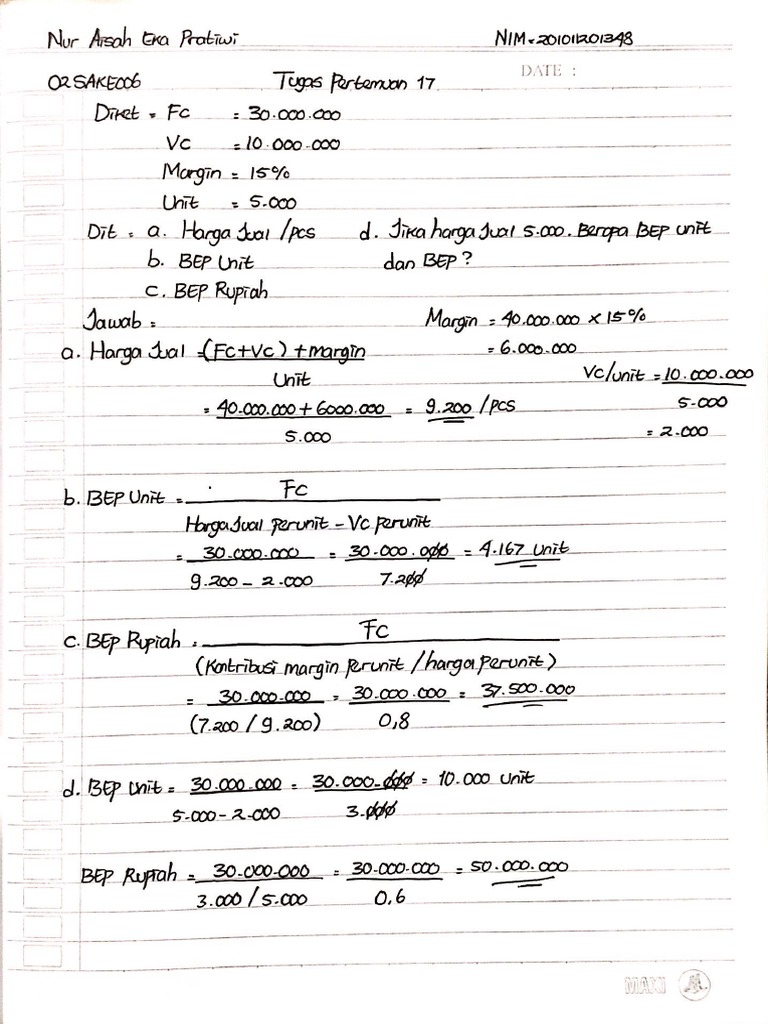 Nur Aisah Eka Pratiwi NIM = 201011201348
02SAKE006 Tugas Pertemuan 17 DATE :
Diket = Fc = 30.000.000
Vc = 10.000.000
Margin = 15%
Unit = 5.000
Dit = a. Harga Jual /pcs d. Jika harga Jual 5.000. Berapa BEP unit
b. BEP Unit dan BEP?
c. BEP Rupiah
Jawab = Margin = 40.000.000 x 15%
a. Harga Jual = (Fc+Vc) + margin = 6.000.000
Unit Vc/unit = 10.000.000
= 40.000.000 + 6000.000 = 9.200 /pcs 5.000
5.000 = 2.000
b. BEP Unit = Fc
Harga Jual perunit - Vc perunit
= 30.000.000 = 30.000.000 = 4.167 unit
9.200 - 2.000 7.200
c. BEP Rupiah = Fc
(Kontribusi margin perunit / harga perunit)
= 30.000.000 = 30.000.000 = 37.500.000
(7.200 / 9.200) 0,8
d. BEP Unit = 30.000.000 = 30.000.000 = 10.000 unit
5.000 - 2.000 3.000
BEP Rupiah = 30.000.000 = 30.000.000 = 50.000.000
3.000 / 5.000 0.6
MAXI